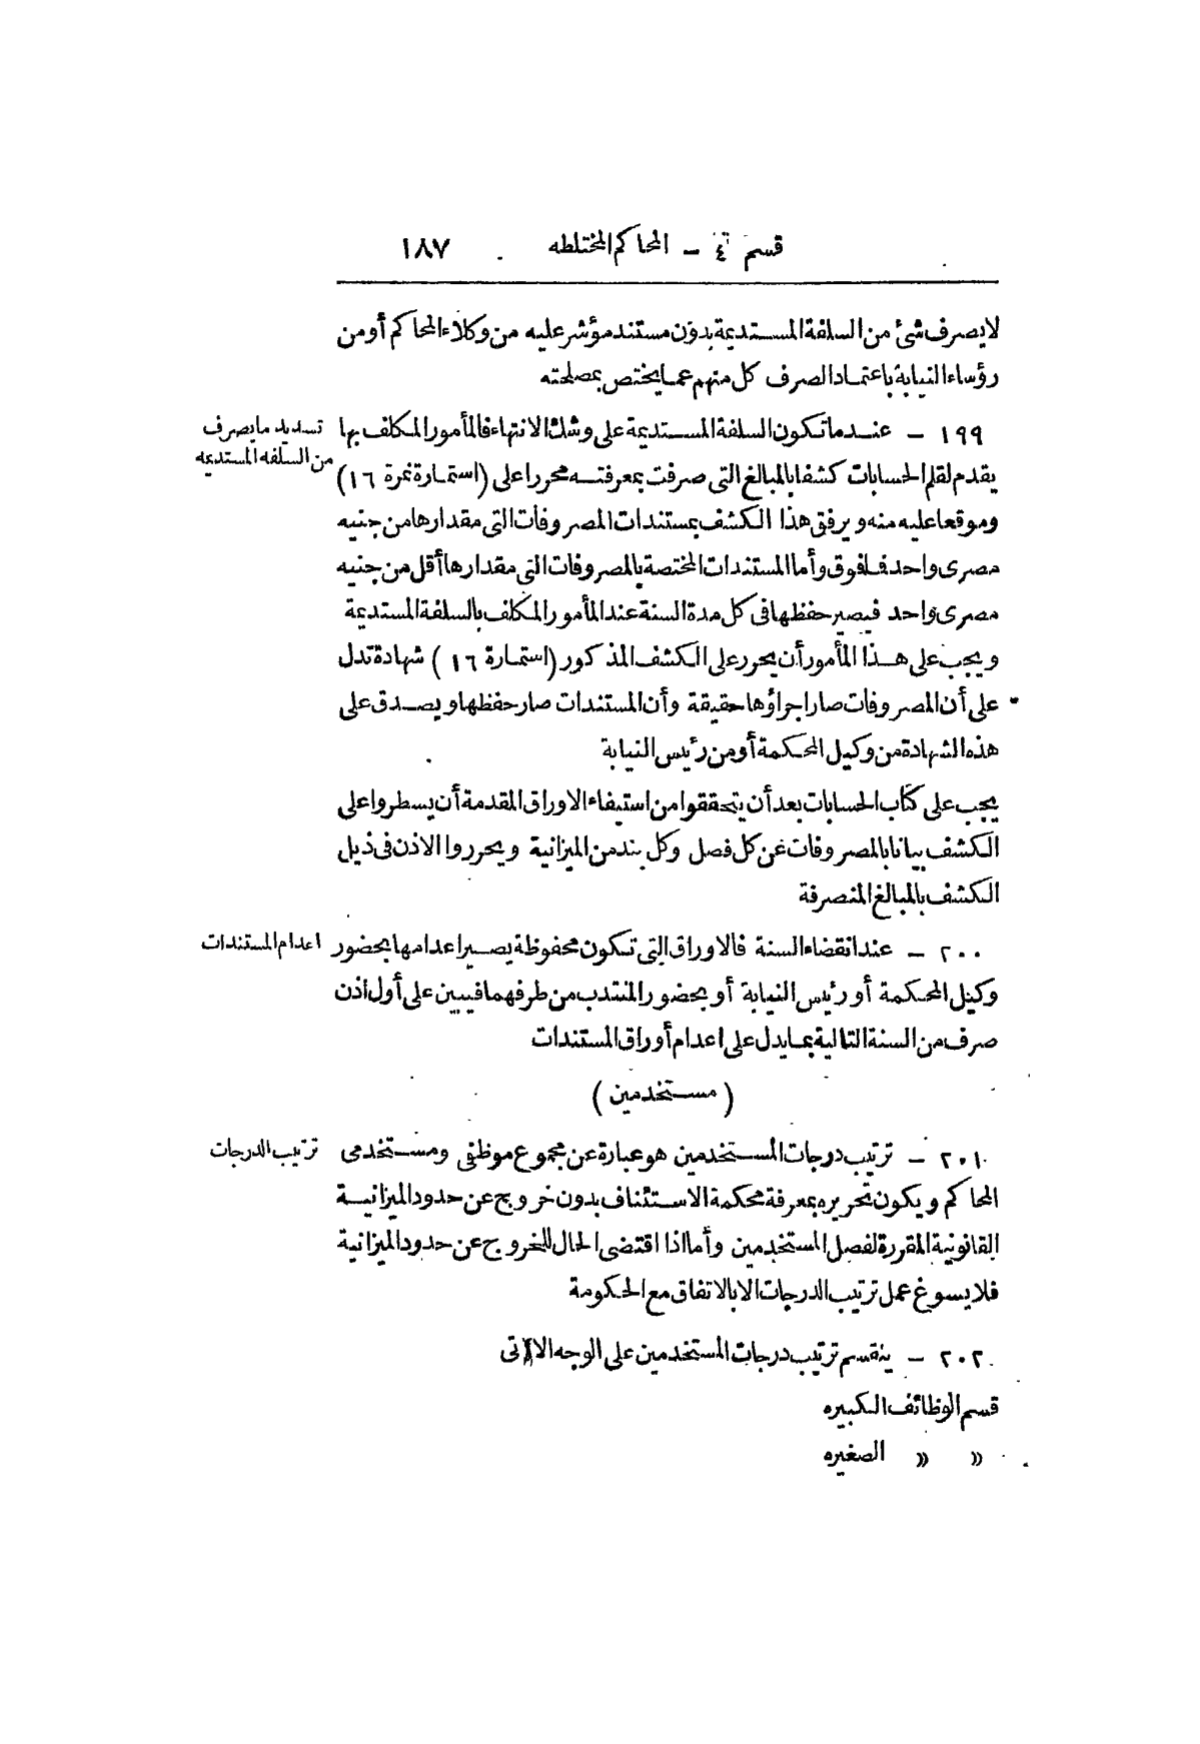 قسم ٤ - المحاكم المختلطه ١٨٧
لا يصرف شئ من السلفة المستديمة بدون مستند مؤشر عليه من وكلاء المحاكم أو من
رؤساء النيابة باعتماد الصرف كل منهم عما يختص بمصلحته
١٩٩ - عندما تكون السلفة المستديمة على وشك الانتهاء فالمأمور المكلف بها
تسديد ما يصرف
من السلفه المستديمه
يقدم لقلم الحسابات كشفا بالمبالغ التى صرفت بمعرفته محررا على (استمارة نمرة ١٦)
وموقعا عليه منه ويرفق هذا الكشف بمستندات المصروفات التى مقدارها من جنيه
مصرى واحد فلفوق وأما المستندات المختصة بالمصروفات التى مقدارها أقل من جنيه
مصرى واحد فيصير حفظها فى كل مدة السنة عند المأمور المكلف بالسلفة المستديمة
ويجب على هذا المأمور أن يحرر على الكشف المذكور (استمارة ١٦) شهادة تدل
على أن المصروفات صار اجراؤها حقيقة وأن المستندات صار حفظها ويصدق على
هذه الشهادة من وكيل المحكمة أو من رئيس النيابة
يجب على كتاب الحسابات بعد أن يتحققوا من استيفاء الاوراق المقدمة أن يسطروا على
الكشف بيانا بالمصروفات عن كل فصل وكل بند من الميزانية ويحرروا الاذن فى ذيل
الكشف بالمبالغ المنصرفة
٢٠٠ - عند انقضاء السنة فالاوراق التى تكون محفوظة يصير اعدامها بحضور
اعدام المستندات
وكيل المحكمة أو رئيس النيابة أو بحضور المنتدب من طرفهما فيبين على أول اذن
صرف من السنة التالية بما يدل على اعدام أوراق المستندات
(مستخدمين)
٢٠١ - ترتيب درجات المستخدمين هو عبارة عن مجموع موظفى ومستخدمى
ترتيب الدرجات
المحاكم ويكون تحريره بمعرفة محكمة الاستئناف بدون خروج عن حدود الميزانية
القانونية المقررة لفصل المستخدمين وأما اذا اقتضى الحال للخروج عن حدود الميزانية
فلا يسوغ عمل ترتيب الدرجات الا بالاتفاق مع الحكومة
٢٠٢ - ينقسم ترتيب درجات المستخدمين على الوجه الآتى
قسم الوظائف الكبيره
« « الصغيره